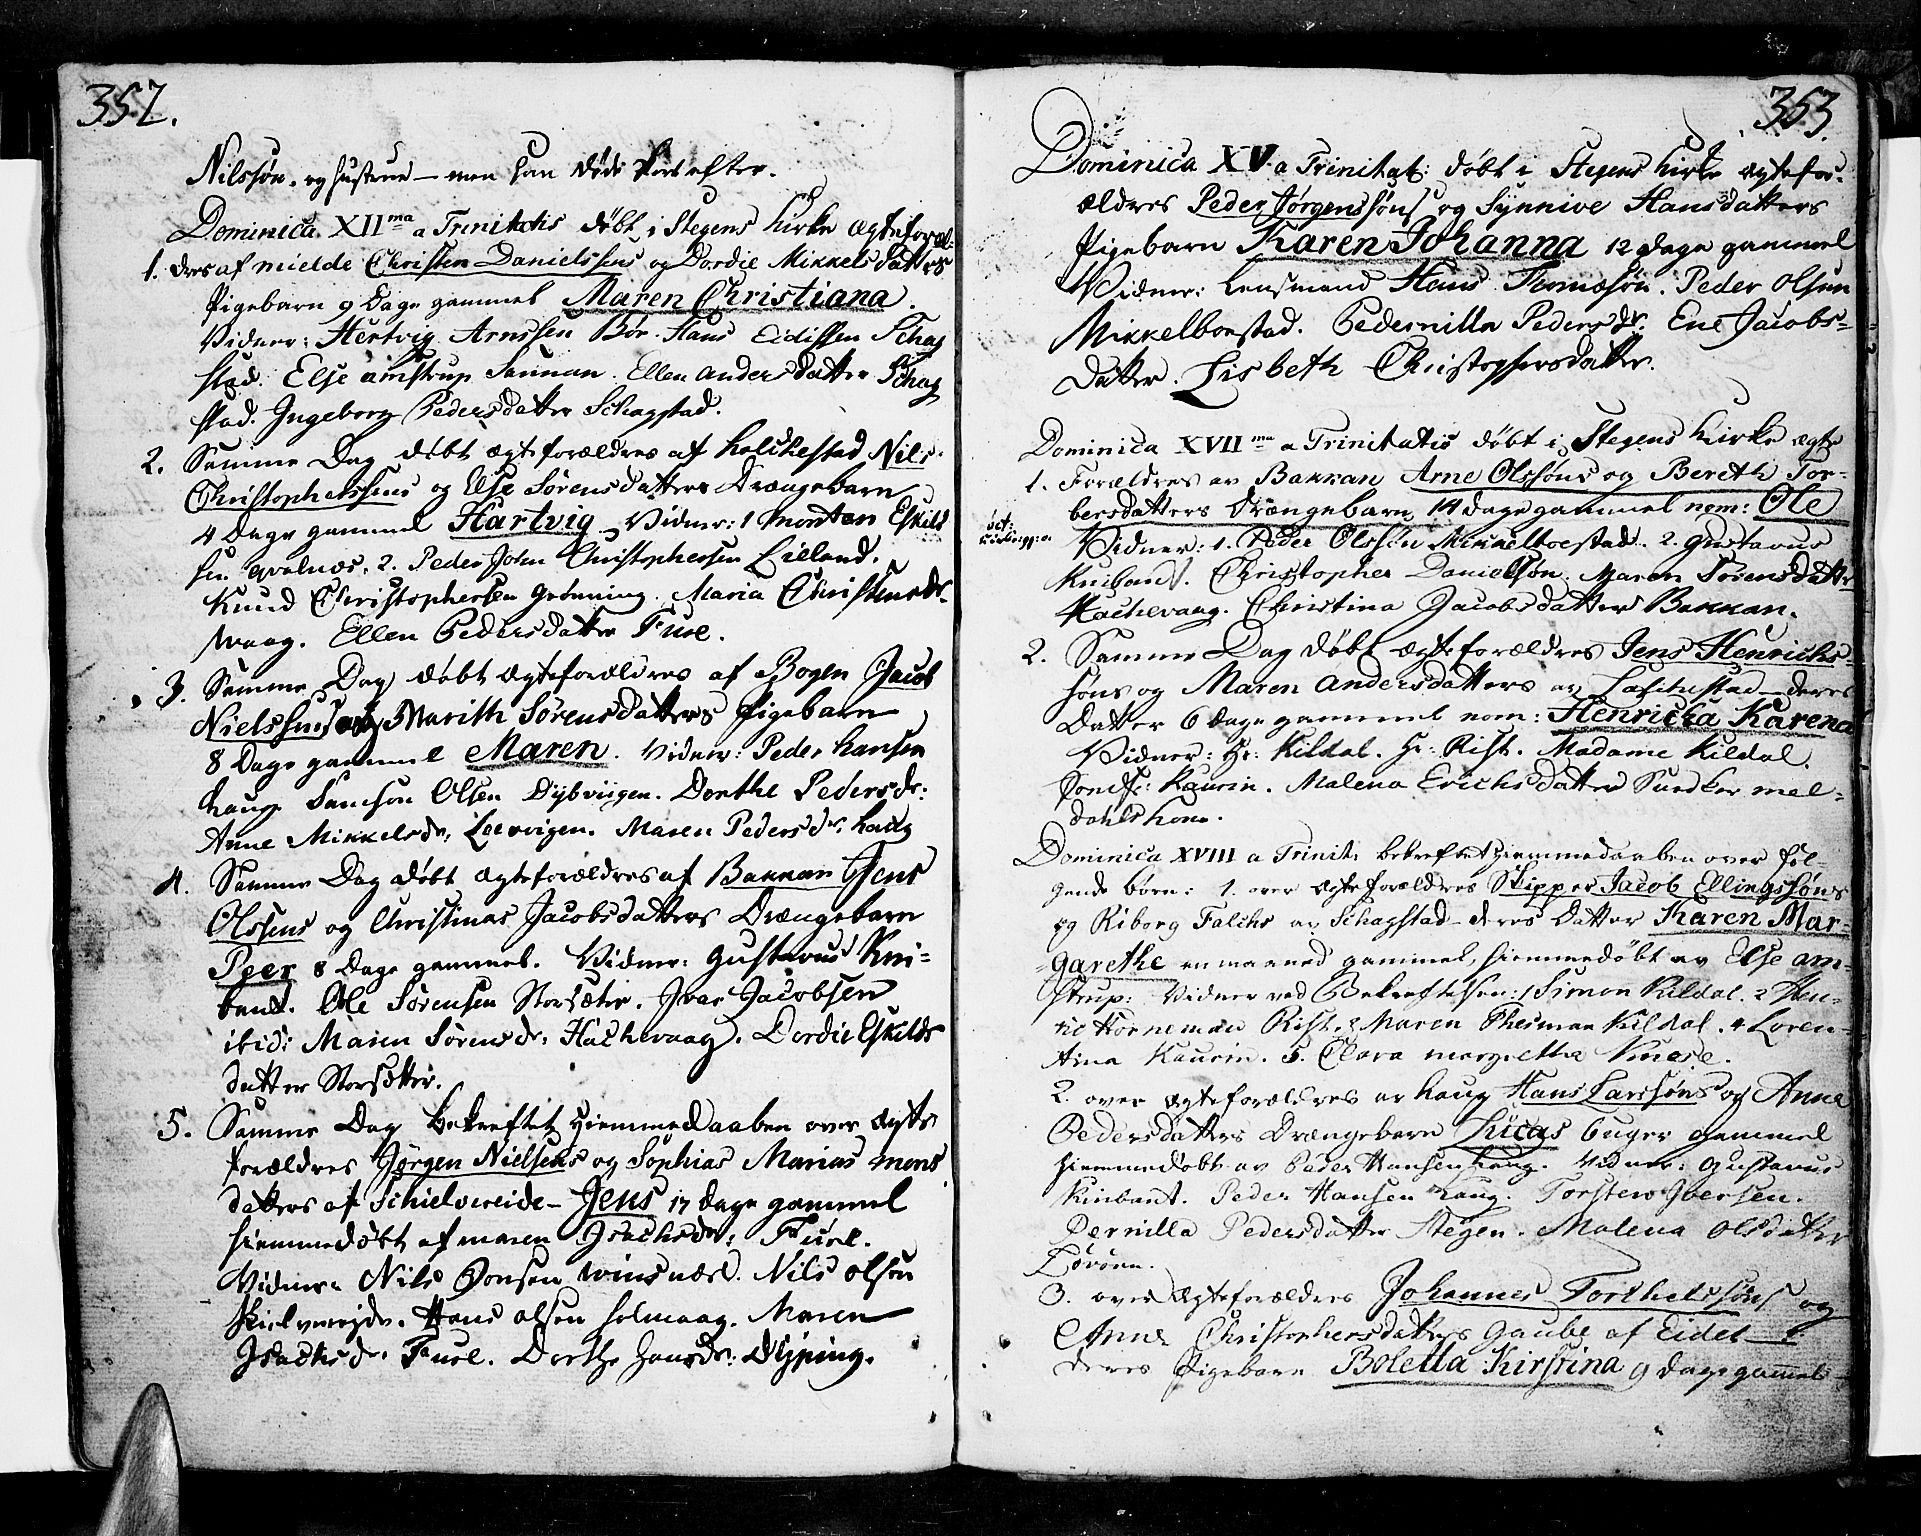 352.
Nilssøn. og hustrue – men han døde kort efter.
Dominica XII ma a Trinitatis døbt i Stegens Kirke ægteforæl-
1. dres af mielde Christen Danielssens og Dordie Mikkelsdatters
Pigebarn 9 Dage gammel Maren Christiana.
Vidner: Hertvig Arnssen Bør. Hans Eidissen Schag
stad. Else amstrup Sannan. Ellen andersdatter Schag
stad. Ingeborg Pedersdatter Schagstad.
2. Samme Dag døbt ægteforældres af holchestad Nils
Christophersens og Else Sørensdatters Drængebarn
4 Dage gammel Hartvig – Vidner: 1 montan Eskild
sen qvalnæs. 2. Peder John Christophersen Eilland.
Knud Christophersen Grønning. Maria Christensdr.
waag. Ellen Pedersdatter Fure.
3. Samme Dag døbt ægteforældres af Bogen Jacob
Nielssens og Marith Sørensdatters Pigebarn
8 Dage gammel Maren. Vidner: Peder hansen
haug Samson Olsen Dybviigen. Dorthe Pedersdr:
Anne Mikkelsdr. Leervigen. Maren Pedersdr. haug
4. Samme Dag døbt ægteforældres af Bakkan Jens
Olssens og Christinas Jacobsdatters Drængebarn
Peer 8 Dage gammel. Vidner: Gustavus Kni-
bant. Ole Sørensen Storsæter. Ivar Jacobsen
ibid: Maren Sørensdr. Hachevaag. Dordie Eskilds
datter Storsætter.
5. Samme Dag bekreftet Hiemmedaaben over ægte
forældres Jørgen Nielsens og Sophias Marias mons
datters af Schielvereide – Jens 17 dage gammel
hiemmedøbt af maren Isachsdr: Fusel.
Vidner: Nils Jonsen winsnæs. Nils olsen
skielvereide. Hans olsen holmaag. Maren
Isachsdr. Fuse. Dorthe hansdr: Dypping.
353.
Dominica XV a Trinitat: døbt i Stegens Kirke ægtefor-
ældres Peder Jørgenssøns og Synnive Hansdatters
Pigebarn Karen Johanna 12 dage gammel
Vidner: Lensmand Hans Thomæsøn. Peder Olsen
Mikkelboestad. Pedernilla Pedersdr. Ene Jacobs-
datter. Lisbeth Christophersdatter.
Dominica XVII ma a Trinitatis døbt i Stegens Kirke ægte
1. Forældres av Bakkan Arne Olssøns og Bereth Tor-
bersdatters Drængebarn 14 dage gammel nom: Ole
Vidner: 1. Peder Olssøn Mikkelboestad. 2. Gustavus
Knibant. Christopher Danielsøn. Maren Sørensdatter
Hachevaag. Christina Jacobsdatter Bakkan.
2. Samme Dag døbt ægteforældres Jens Henrichs-
søns og Maren andersdatters av Laschestad – deres
Datter 6 dage gammel nom: Henricka Karena
Vidner: Hr: Kildal. Hr: Rist. Madame Kildal.
Jomfr: Kaurin. Malena Erichsdatter Sundker mel-
dahls kone.
Dominica XVIII a Trinit: bekreftet hiemmedaaben over føl-
gende børn: 1. over ægteforældres Skipper Jacob Ellingssøns
og Riborg Falchs av Schagstad – deres Datter Karen Mar-
garethe en maaned gammel, hiemmedøbt av Else am-
strup: Vidner ved Bekreftelsen: 1 Simon Kildal. 2 Hen-
ric Horneman Rist. 3 Maren Theiman Kildal. 4 Loren-
tina Kaurin. 5. Clara margretha
2. over ægteforældres av haug Hans Larssøns og Anne
Pedersdatters Drængebarn Lucas 6 uger gammel
hiemmedøbt av Peder Hansen haug. Vidner: Gustavus
Kinbant. Peder Hansen haug. Torsten Iversen.
Pernilla Pedersdatter Stegen. Malena Olsdatter
Lørøen.
3. over ægteforældres Johannes Torchelssøns og
Anne Christophersdatters Gaube af Eidet –
deres Pigebarn Boletta Kirstina 9 dage gammel